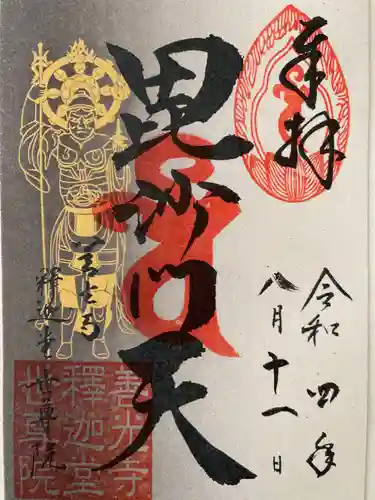 奉拝
令和四年
八月十一日
毘沙門天
善光寺
釋迦堂世尊院
善光寺
釋迦堂
世尊院